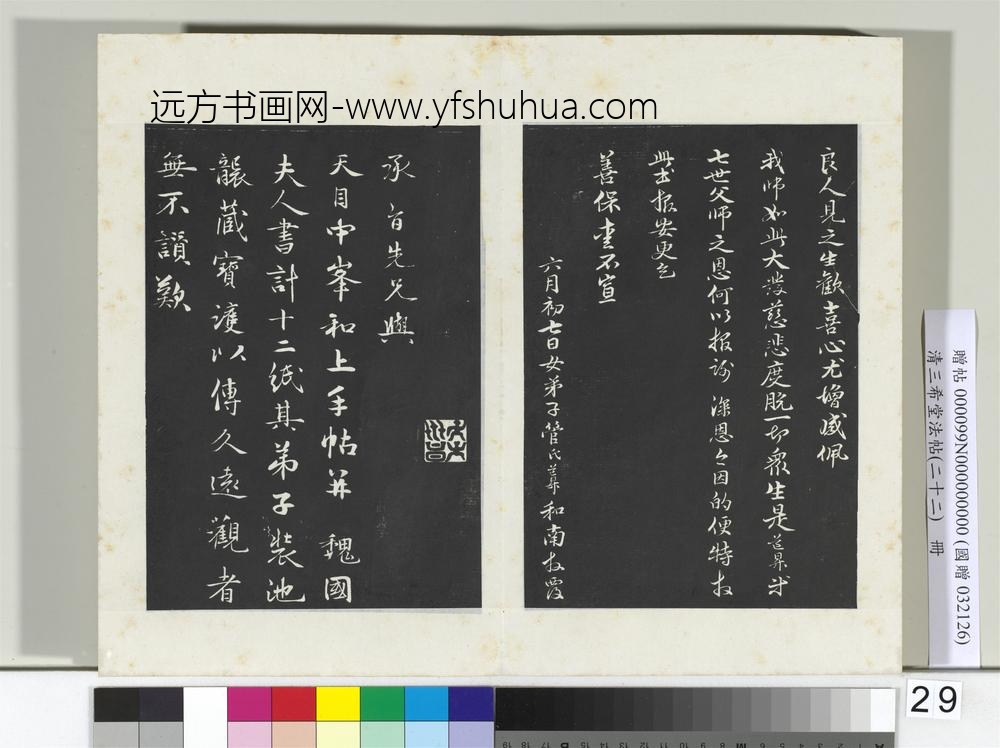 远方书画网-www.yfshuhua.com
良人見之生歡喜心尤增感佩
我師如此大發慈悲度脱一切衆生是
七世父師之恩何以報謝 深恩今因的便特
此報安更乞
善保重不宣
六月初七日女弟子管氏 和南拜覆
承旨先兄與
天目中峯和上手帖并 魏國
夫人書計十二紙其弟子装池
襲藏寶護以傳久遠觀者
無不讚歎
贈帖 000099N000000000 (國贈 032126)
清三希堂法帖(二十二) 冊
29